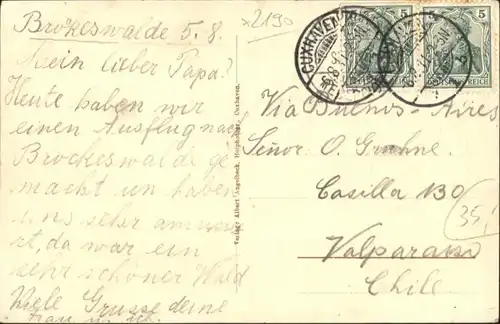 Brokeswalde 5.8.
Mein lieber Papa!
Heute haben wir
einen Ausflug nach
Brockeswalde ge
macht un haben
uns sehr amus
rt, da war ein
sehr schöner Wald
Viele Grusse deine
×2190
Verleger Albert Hofphotogr. Cuxhaven.
CUXHAVEN
5
5
REICH
Via Buenos-Aires
Señor O. Grahne.
Casilla 130
35.
Valparaiso
Chile